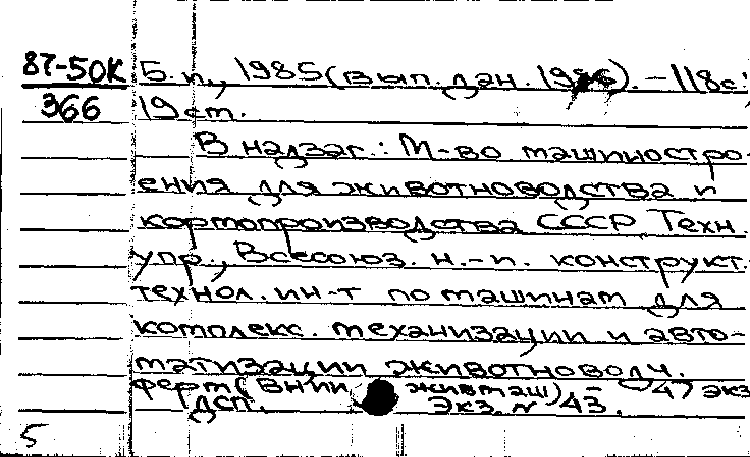 87-50К Б. и., 1985 (вып. дан. 1986). - 118 с.;
366 19 см.
В надзаг.: М-во машиностро-
ения для животноводства и
кормопроизводства СССР, Техн.
упр., Всесоюз. н.-и. конструкт.
технол. ин-т по машинам для
комплекс. механизации и авто-
матизации животноводч.
ферм (ВНИИ живмаш) - 47 экз
ДСП. Экз. № 43.
5